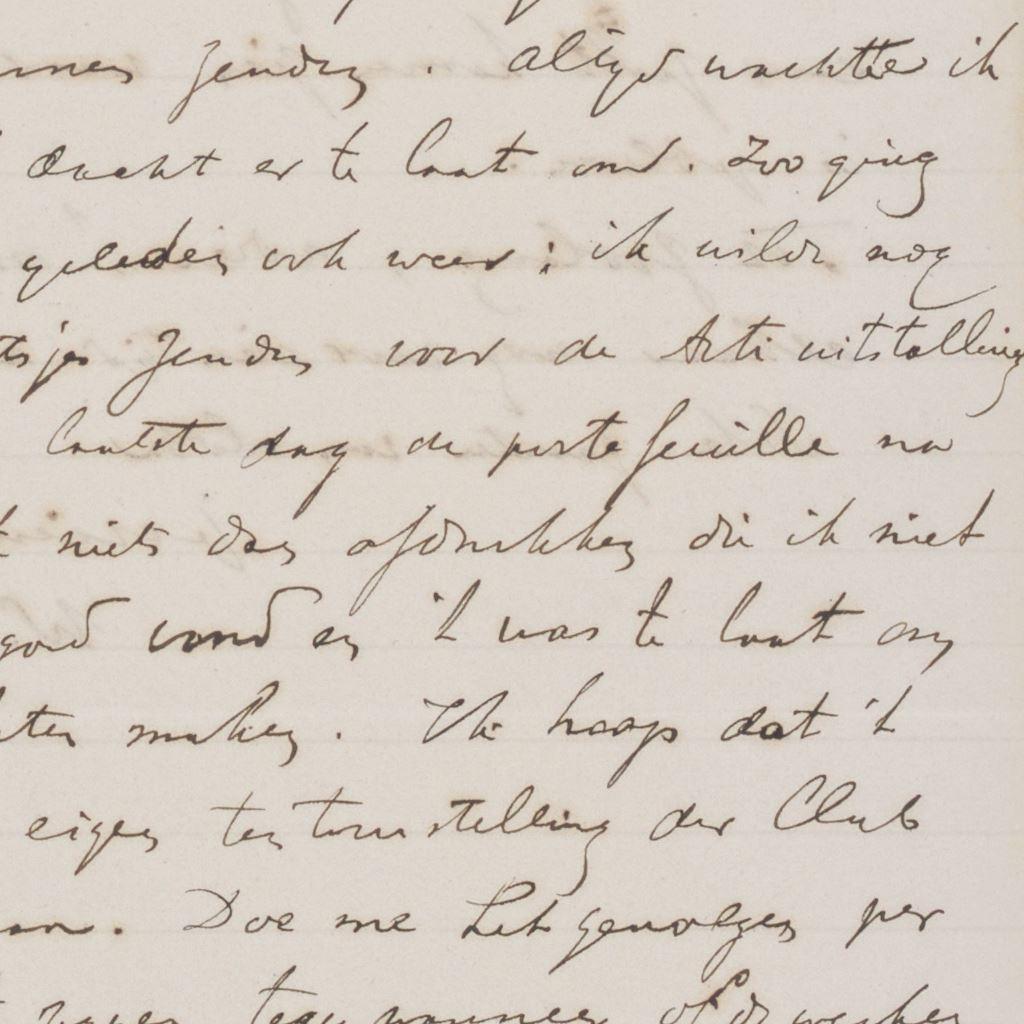 zenden. Altijd wachtte ik
dacht er te laat om. Zoo ging
geleden ook weer: ik wilde nog
tsjes zenden voor de Arti uitstalling
laatste dag de portefeuille na
t niets dan afdrukken die ik niet
goed vond en 't was te laat om
maken. Ik hoop dat 't
eigen tentoonstelling der Club
Doe me het genoegen per